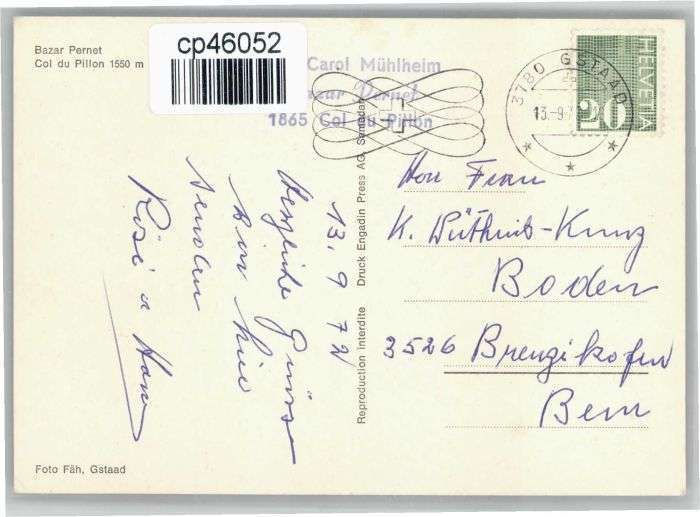 Bazar Pernet
Col du Pillon 1550 m
cp46052
Carol Mühlheim
Bazar Pernet
1865 Col du Pillon
3780 GSTAAD
13.-9.7
HELVETIA
20
13. 9 72
Herzliche Grüsse
von hier
senden
Rösi u Hans
Reproduction interdite Druck Engadin Press AG, Samedan
Herr Frau
K. Wüthrich-Kunz
Boden
3526 Brenzikofen
Bern
Foto Fäh, Gstaad